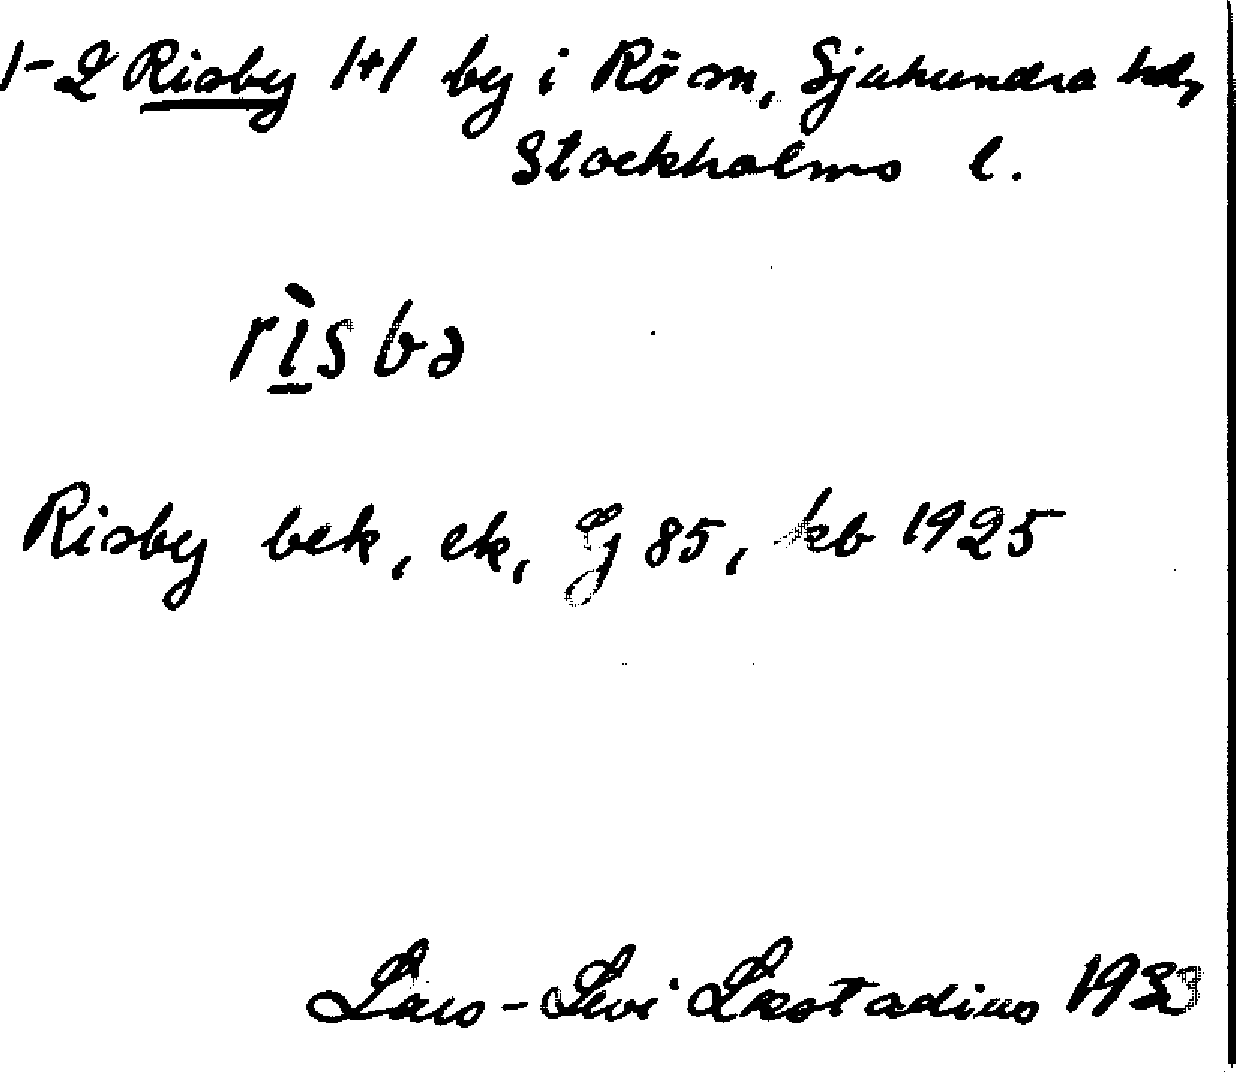 1-2 Risby 1+1 by i Rö sn, Sjuhundra hd,
Stockholms l.
rìsbə
Risby bek, ek, Gj 85, kb 1925
Lars-Levi Læstadius 1933